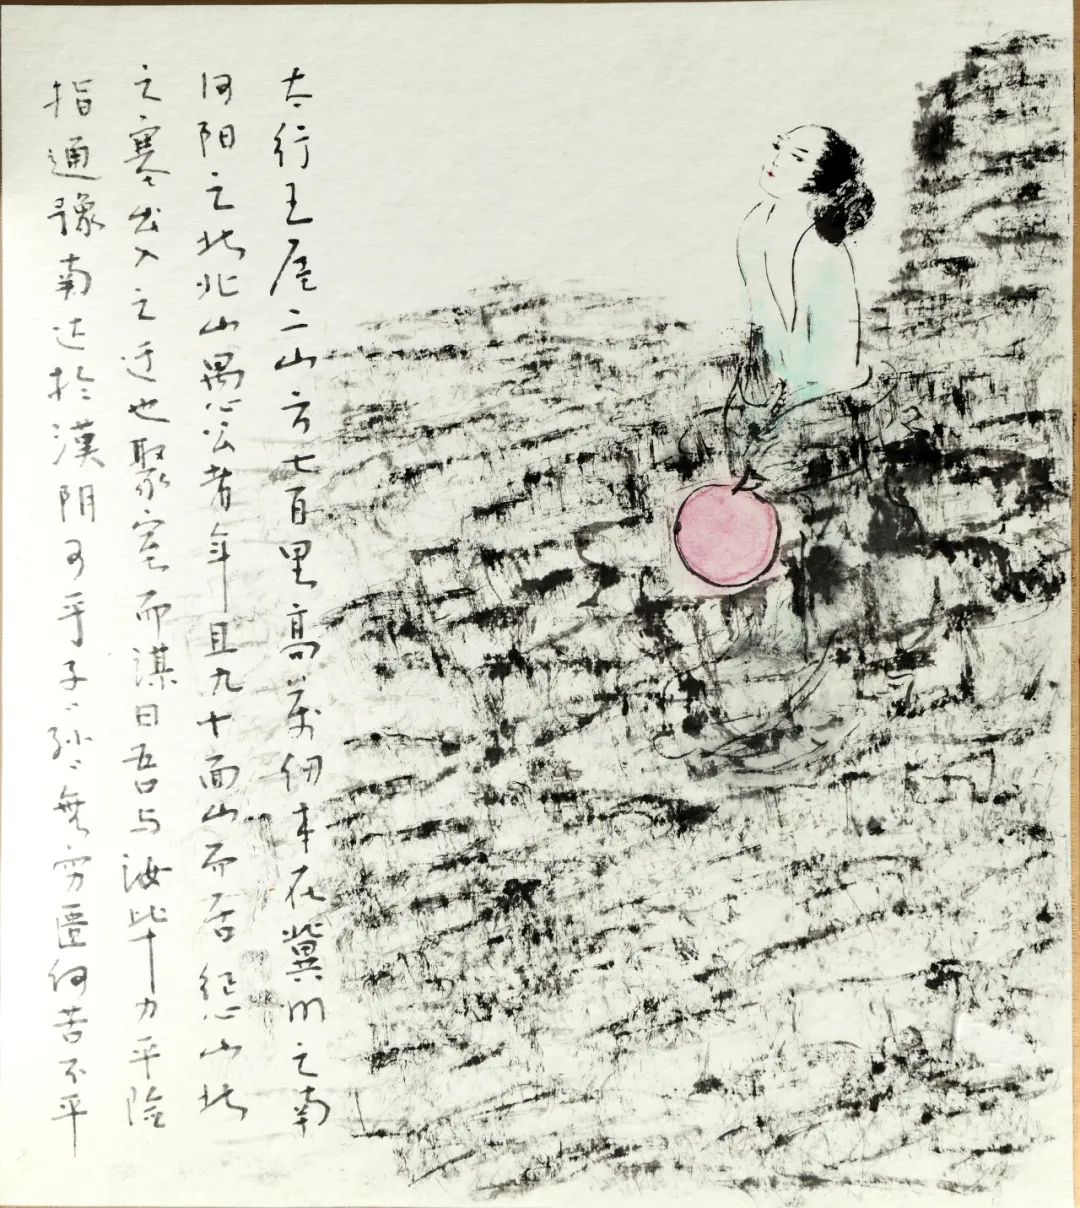 太行王屋二山方七百里高万仞本在冀州之南
河阳之北北山愚公者年且九十面山而居惩山北
之塞出入之迂也聚室而谋曰吾与汝毕力平险
指通豫南达於漢阴可乎子〻孙〻無穷匮何苦不平